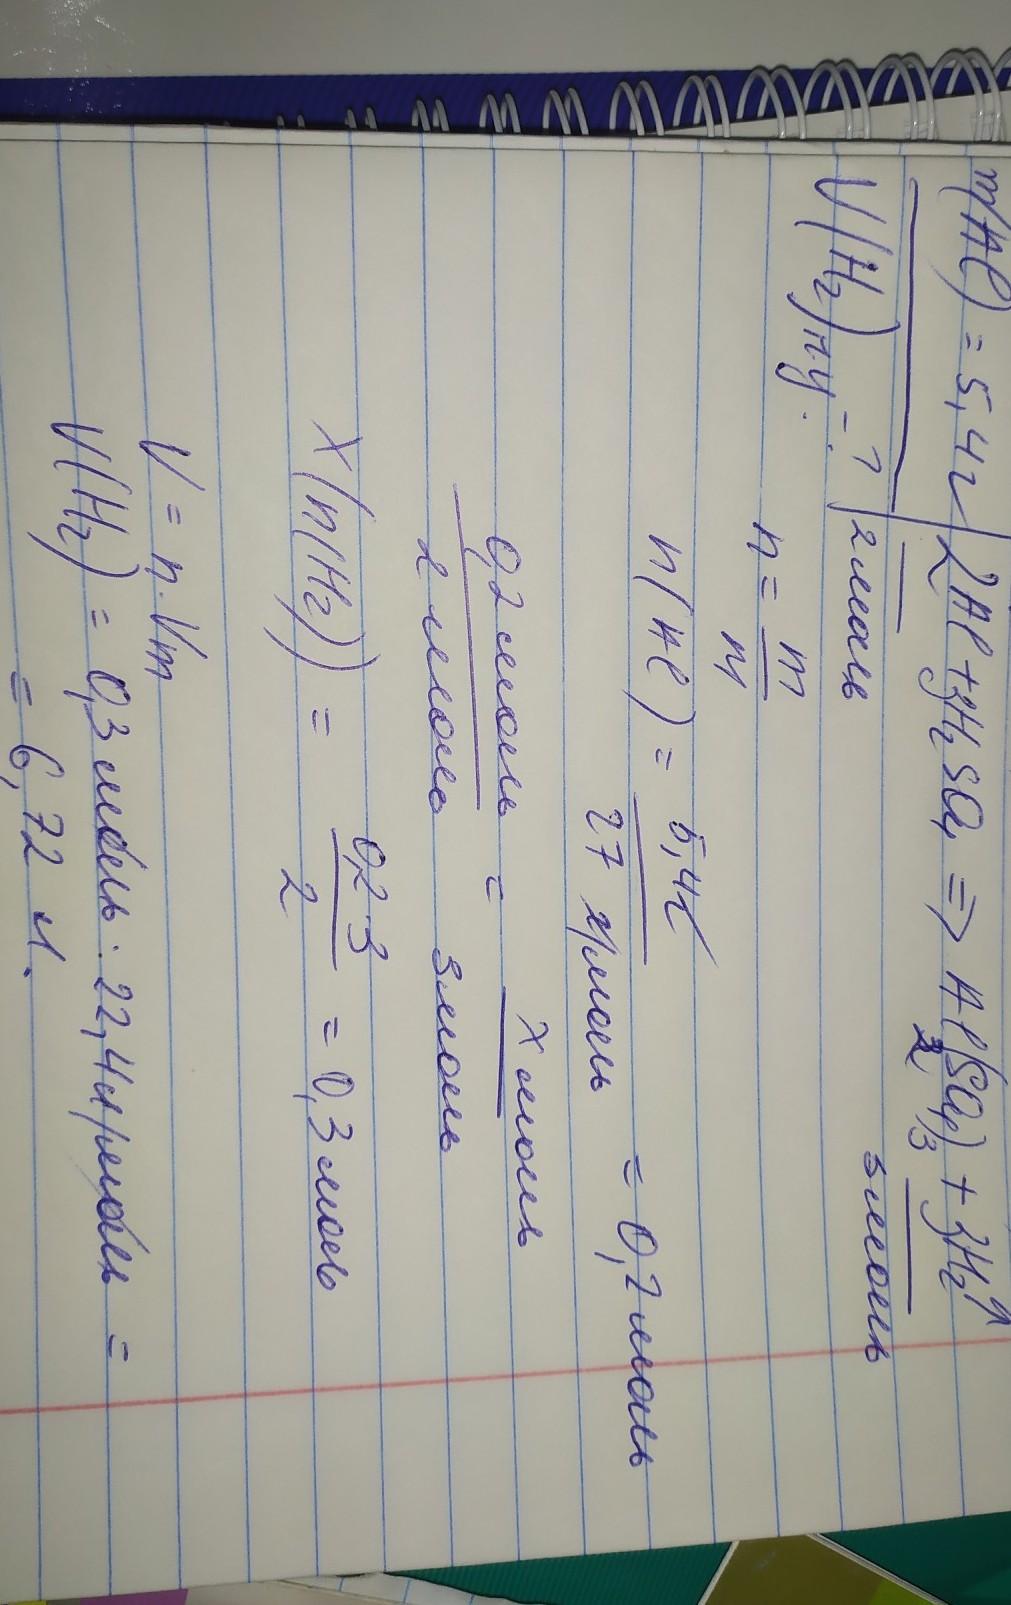 m(Al) = 5,4г 2Al + 3H₂SO₄ => Al₂(SO₄)₃ + 3H₂↑
V(H₂)н.у. - ? 2моль 3моль
n = m/M
n(Al) = 5,4г / 27 г/моль = 0,2 моль
0,2 моль / 2 моль = x моль / 3 моль
X(n(H₂)) = 0,2·3 / 2 = 0,3 моль
V = n · Vm
V(H₂) = 0,3 моль · 22,4 л/моль =
= 6,72 л.